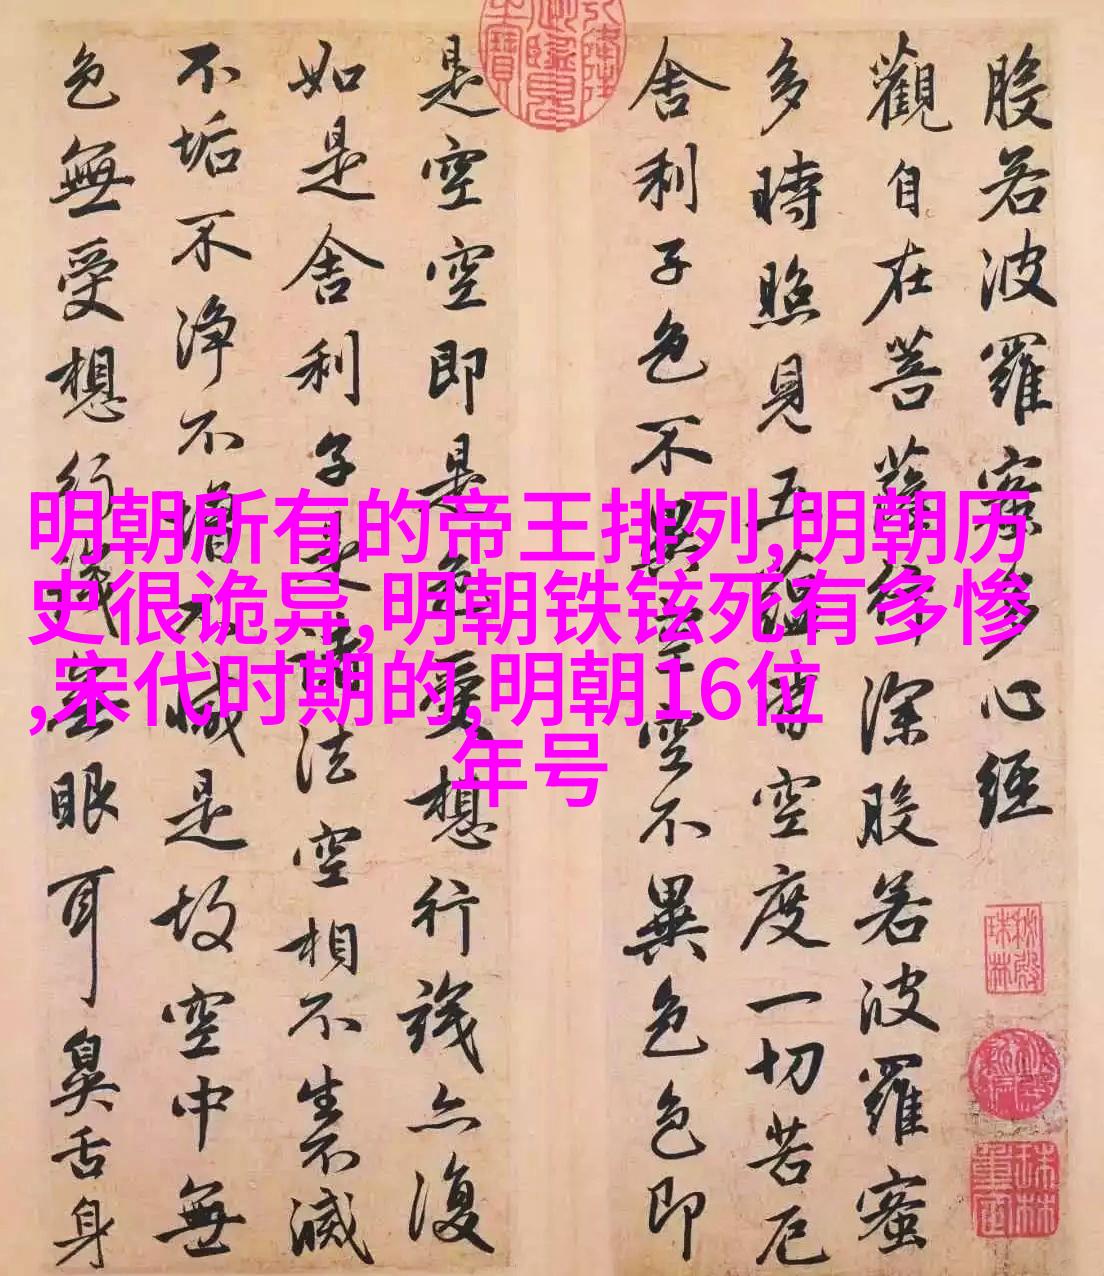 般若波羅蜜多心經
觀自在菩薩行深般若波羅蜜
多時照見五蘊皆空度一切苦厄
舍利子色不異空空不異色色即
是空空即是色受想行識亦復
如是舍利子是諸法空相不生不滅
不垢不淨不增不減是故空中無
色無受想行識無眼耳鼻舌身
明朝所有的帝王排列,明朝历
史很诡异,明朝铁铉死有多惨
,宋代时期的,明朝16位
年号